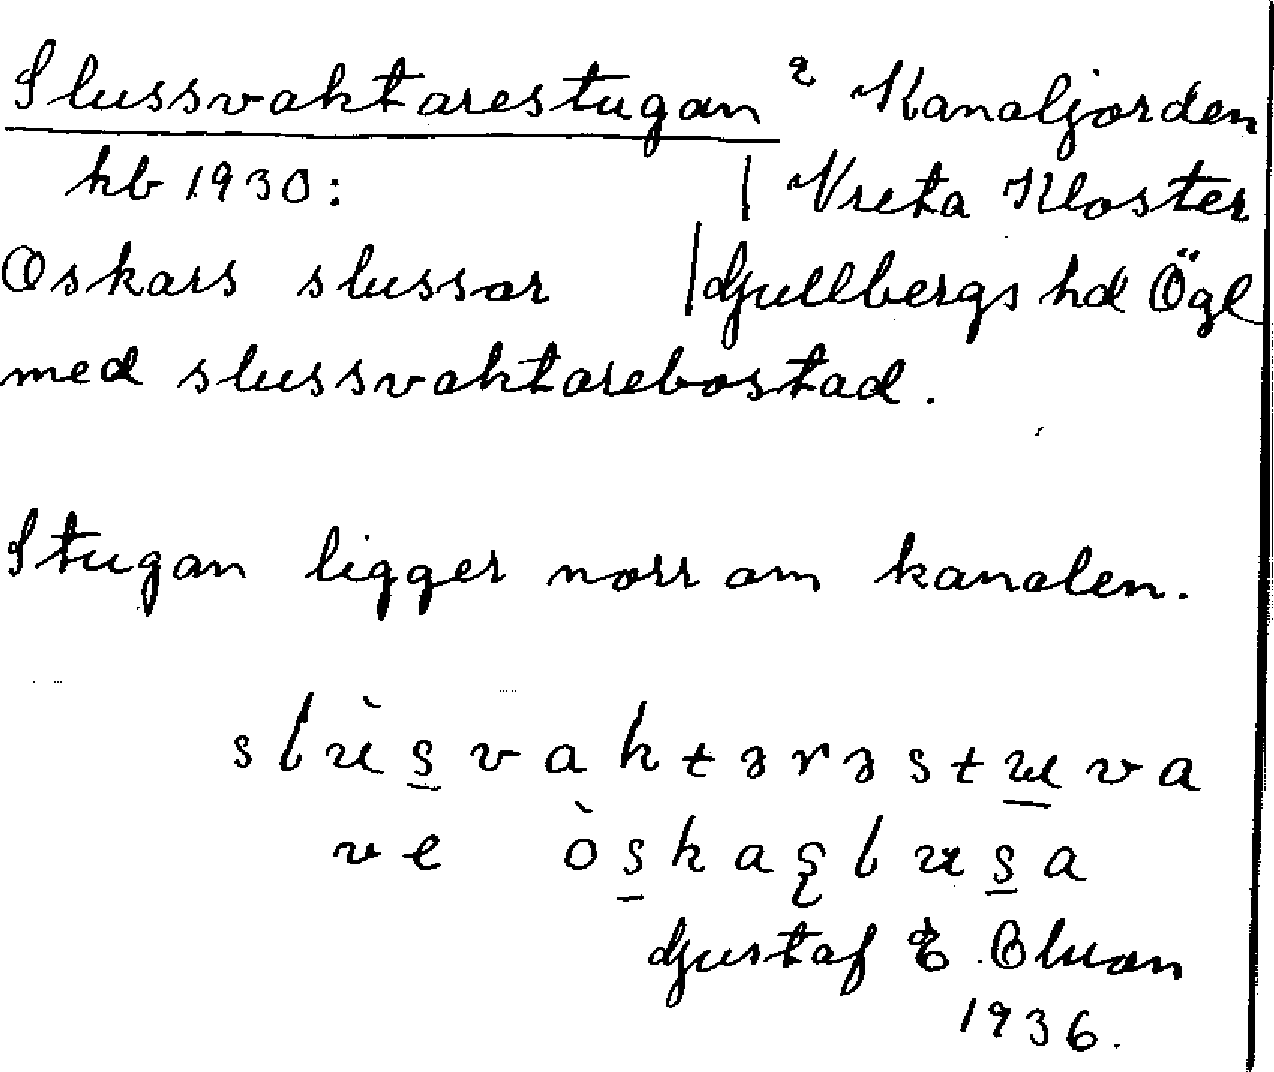 Slussvaktarestugan ² Kanaljorden
hb 1930: | Vreta Kloster
Oskars slussar | Gullbergs hd Ögl
med slussvaktarebostad.
Stugan ligger norr om kanalen.
slùs̲vaktərəstu̲va
ve òs̲kaʂlus̲a
Gustaf E. Olson
1936.